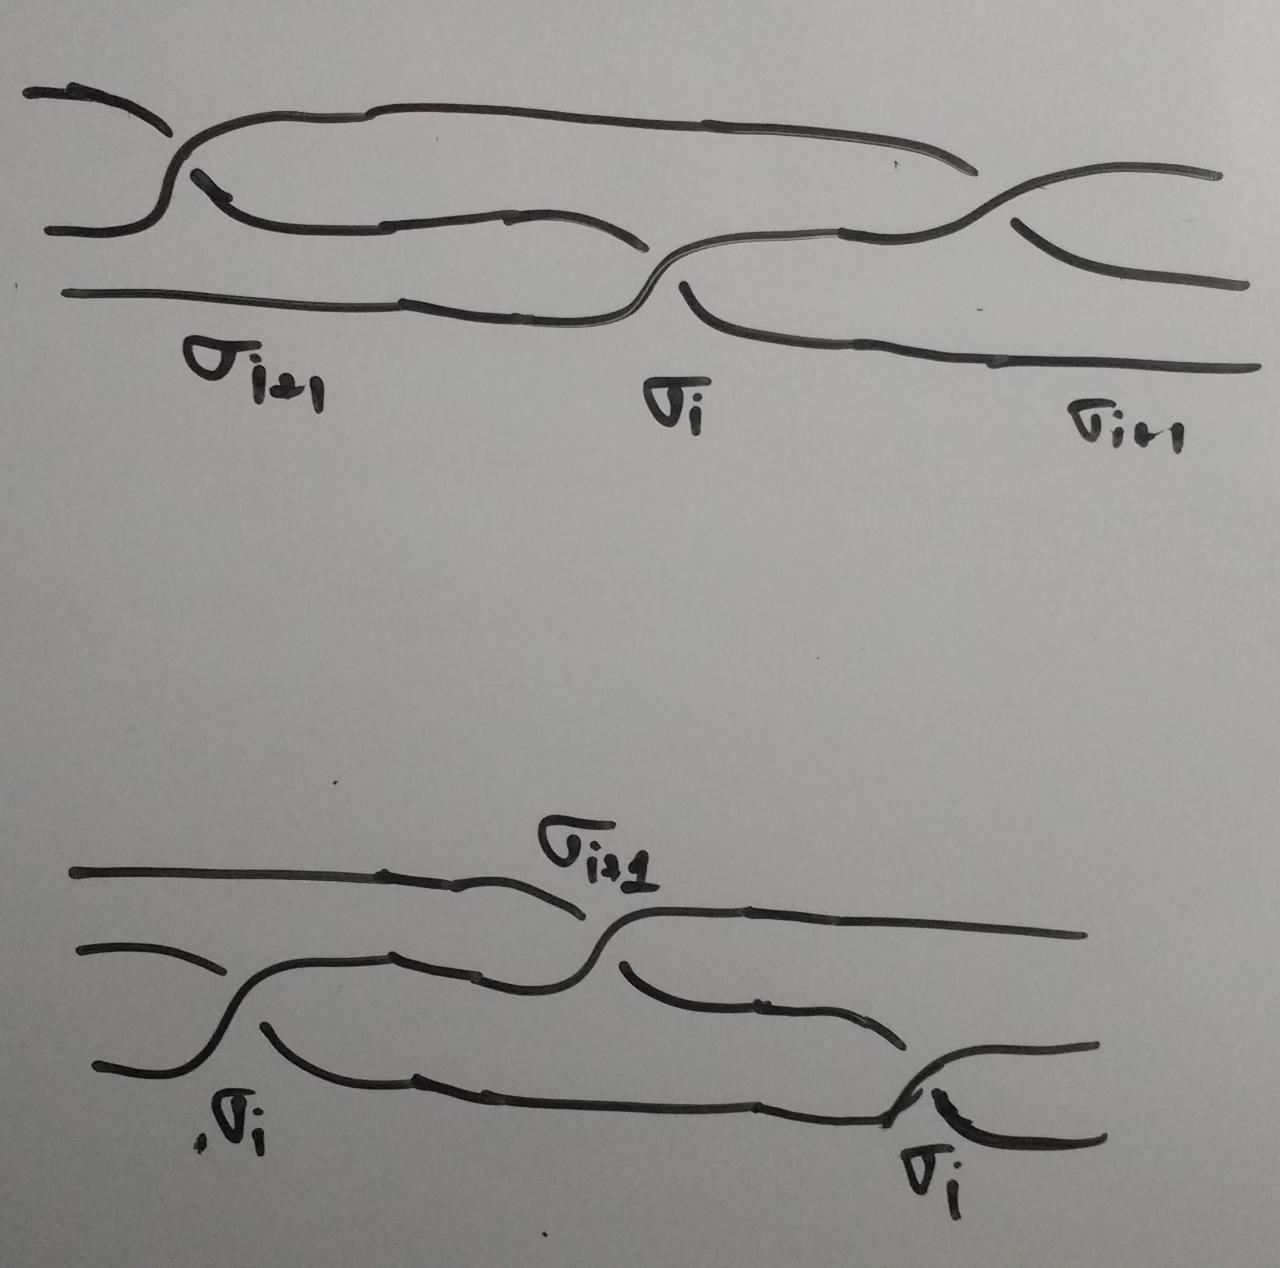 σᵢ₊₁
σᵢ
σᵢ₊₁
σᵢ₊₁
σᵢ
σᵢ